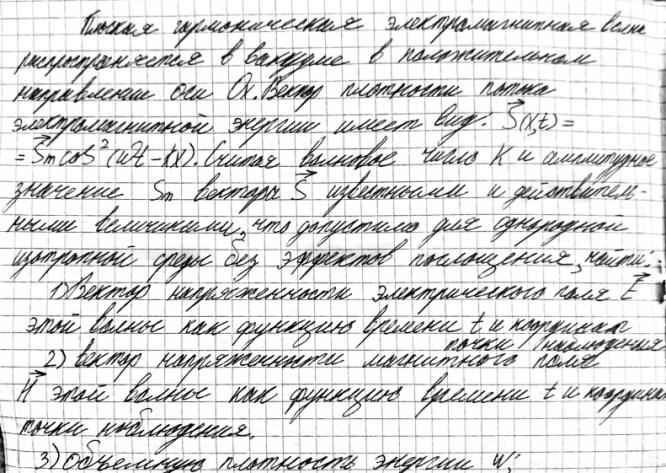 Плоская гармоническая электромагнитная волна
распространяется в вакууме в положительном
направлении оси Ox. Вектор плотности потока
электромагнитной энергии имеет вид: S⃗(x,t)=
= S⃗m cos²(ωt - kx). Считая волновое число K и амплитудное
значение Sm вектора S⃗ известными и действитель-
ными величинами, что допустимо для однородной
изотропной среды без эффектов поглощения, найти:
1) Вектор напряженности электрического поля E⃗
этой волны как функцию времени t и координат
точки наблюдения
2) вектор напряженности магнитного поля
H⃗ этой волны как функцию времени t и координат
точки наблюдения.
3) Объемную плотность энергии W;